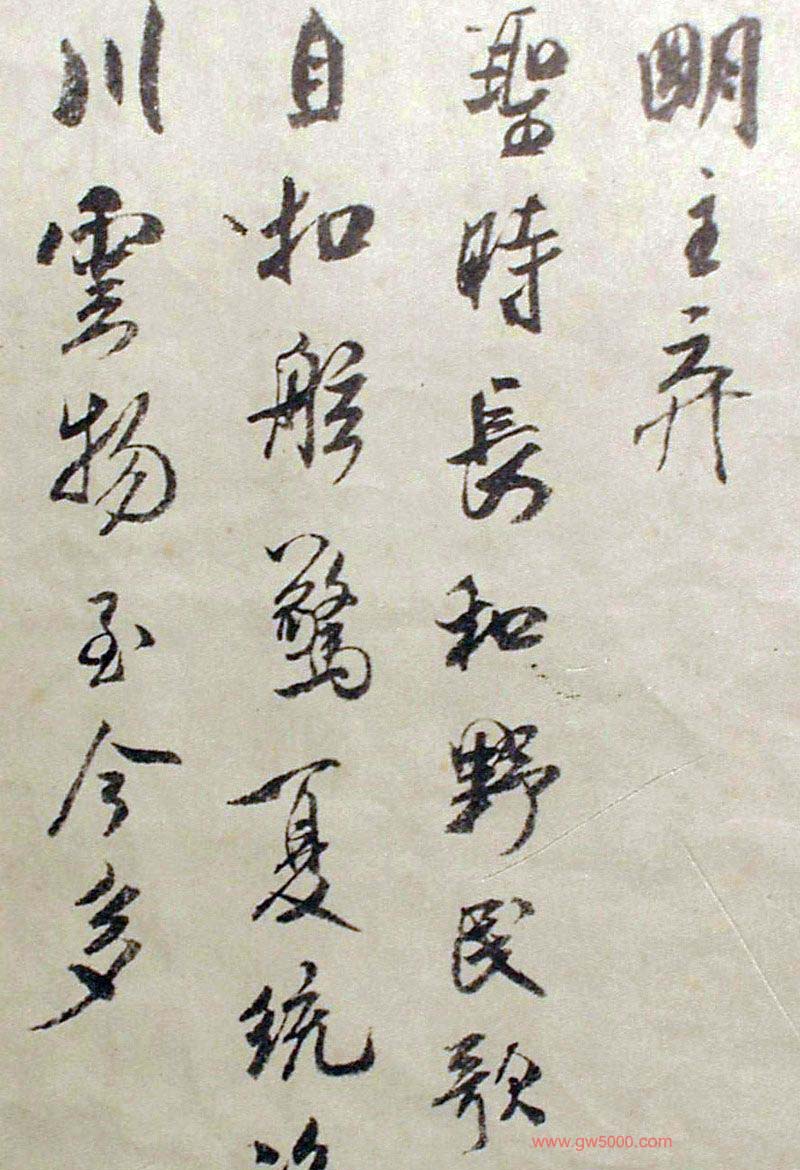 明主弃
聖時長和野民歌
自扣舷驚夏統
川雲物至今多
www.gw5000.com